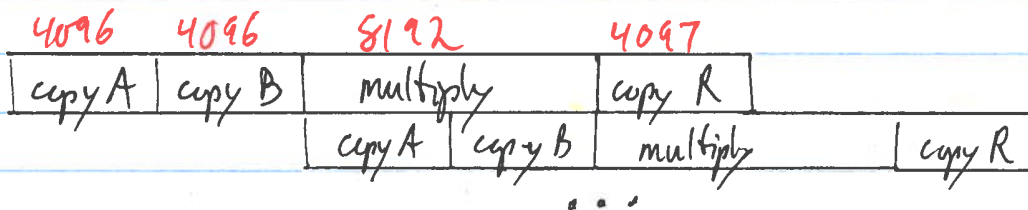 4096 4096 8192 4097
copy A copy B multiply copy R
copy A copy B multiply copy R
...